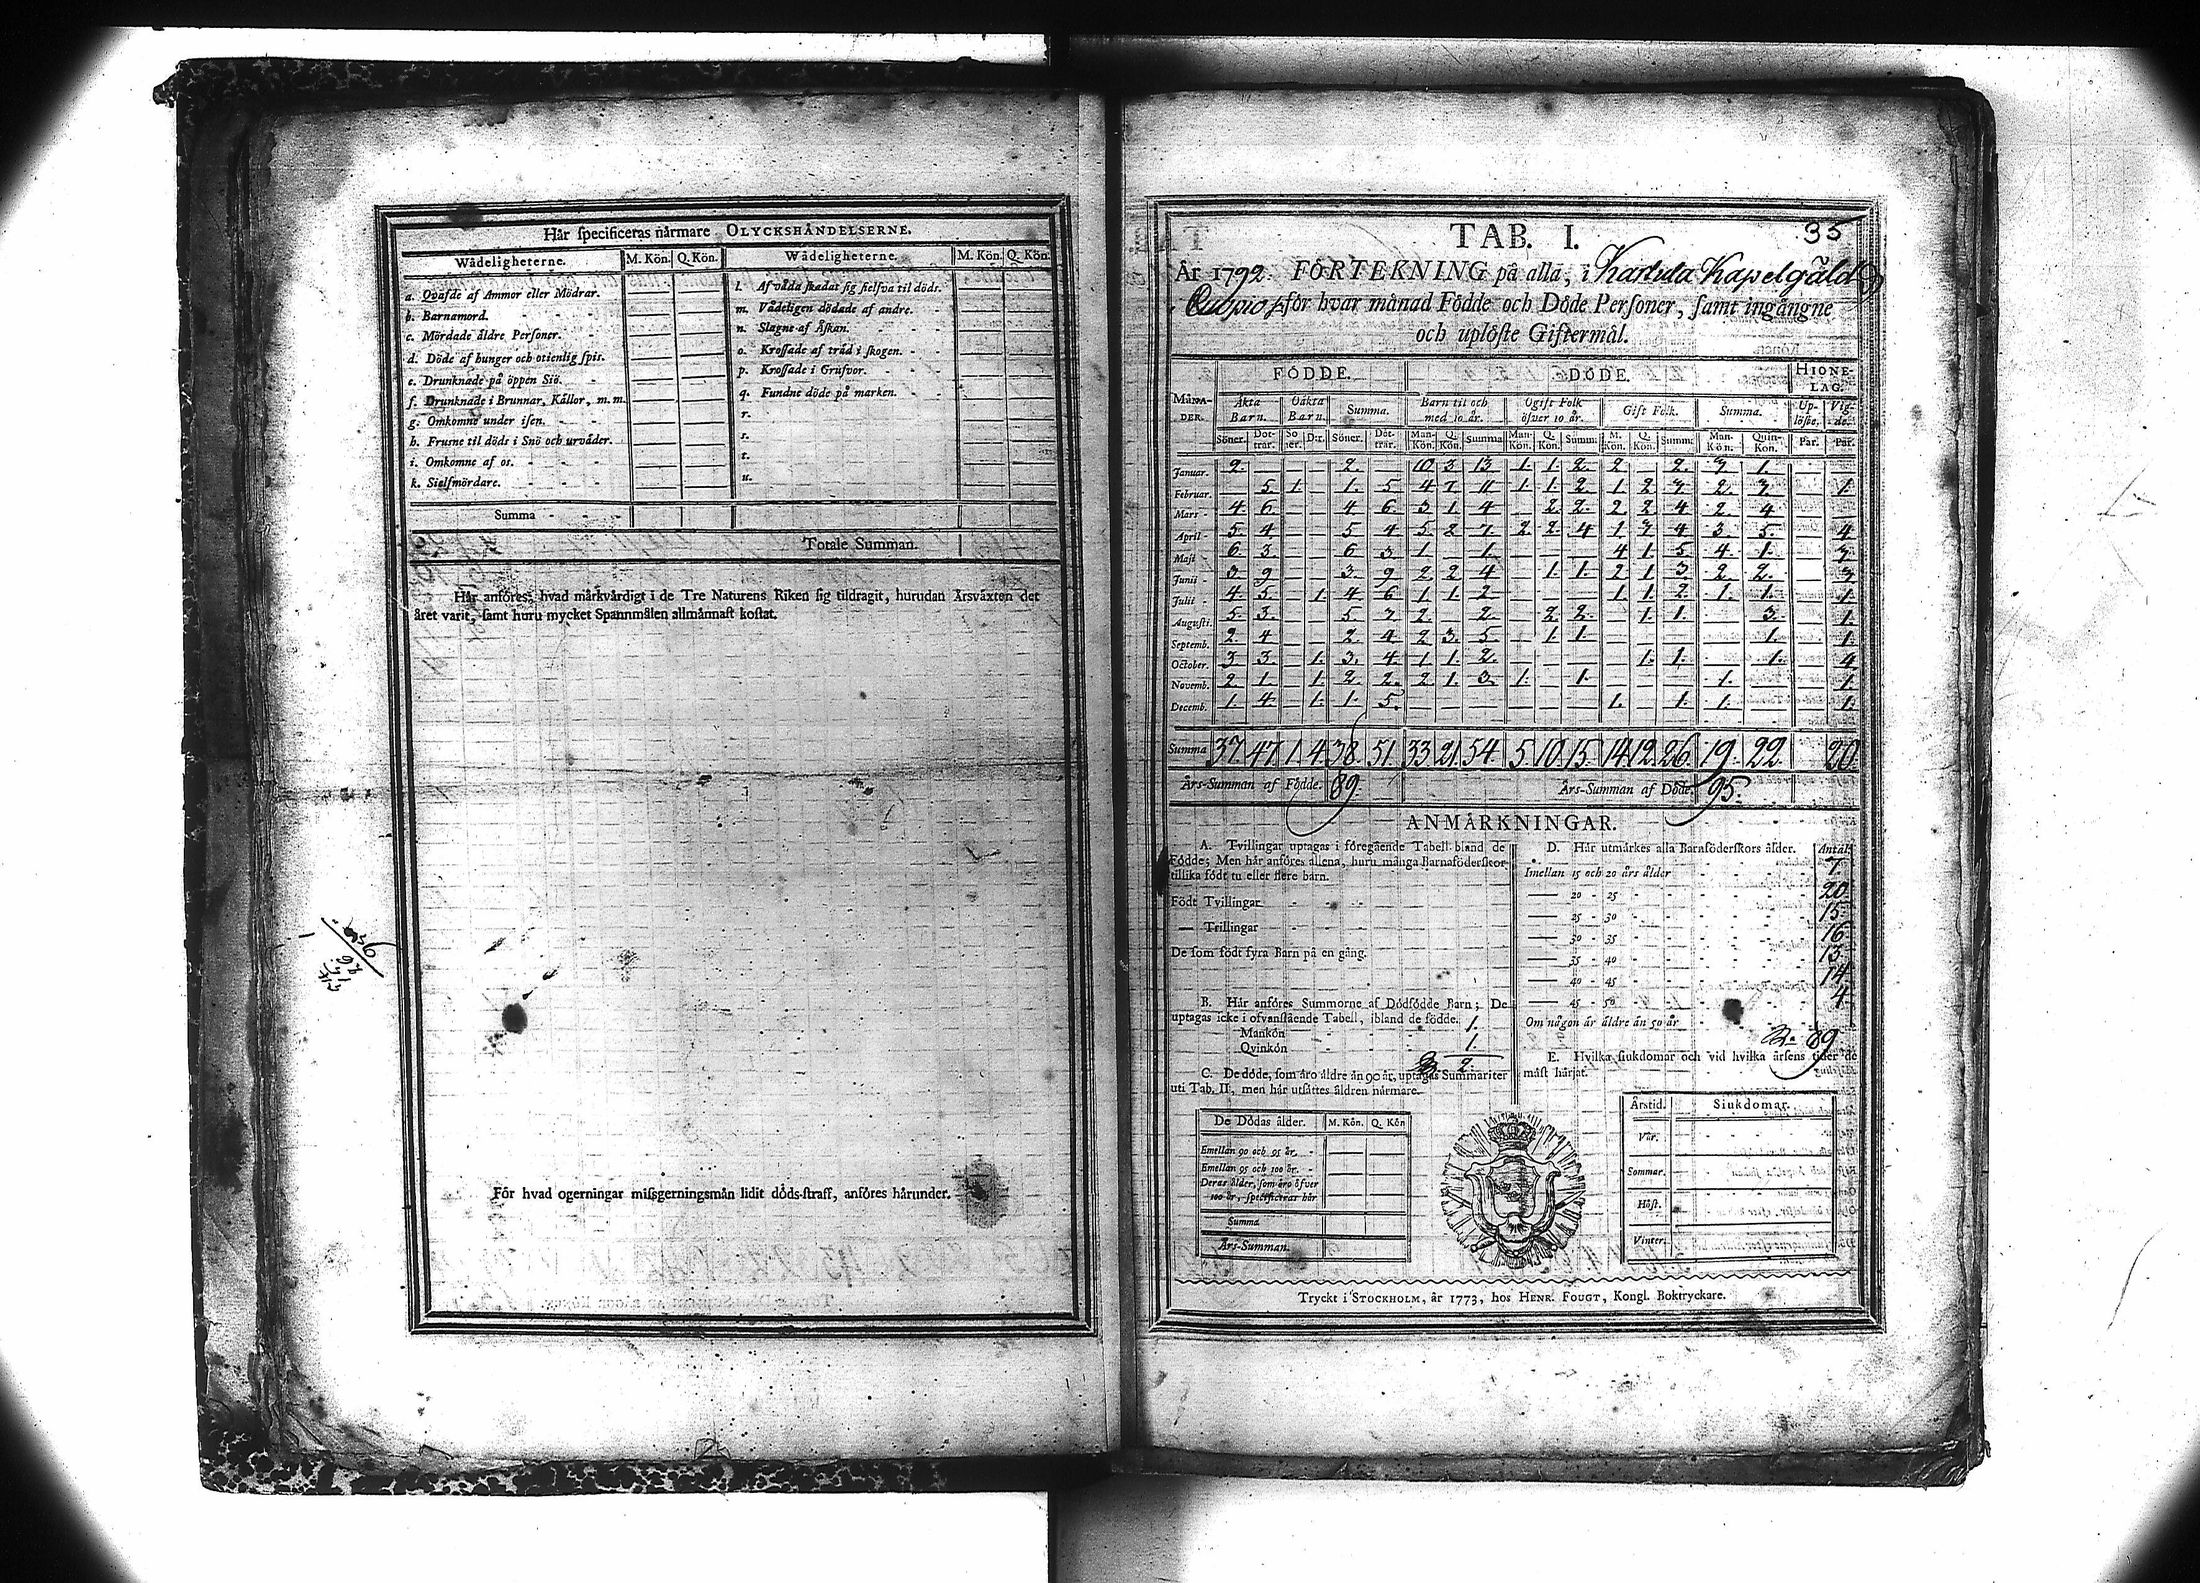 Hår specificeras nårmare OLYCKSHÅNDELSERNE.
Wådeligheterne. M. Kön. Q. Kön. Wådeligheterne. M. Kön. Q. Kön.
a. Qvafde af Ammor eller Mödrar.
b. Barnamord.
c. Mördade åldre Personer.
d. Döde af hunger och otienlig spis.
e. Drunknade på öppen Siö.
f. Drunknade i Brunnar, Kållor, m. m.
g. Omkomne under isen.
h. Frusne til döds i Snö och urvåder.
i. Omkomne af os.
k. Sielfmördare.
l. Af våda skadat sig sielfva til döds.
m. Vådeligen dödade af andre.
n. Slagne af Åskan.
o. Krossade af tråd i skogen.
p. Krossade i Grufvor.
q. Fundne döde på marken.
r.
s.
t.
u.
Summa
Totale Summan.
Hår anföres, hvad mårkvårdigt i de Tre Naturens Riken sig tildragit, hurudan Årsvåxten det
året varit, samt huru mycket Spannmålen allmånnast kostat.
För hvad ogerningar missgerningsmån lidit döds-straff, anföres hårunder.
35
TAB. I.
År 1792. FÖRTEKNING på alla, i Kapelgäld
för hvar månad Födde och Döde Personer, samt ingångne
och uplöste Giftermål.
FÖDDE. DÖDE. HIONELAG.
MÅNADER. Åkta Barn. Oåkta Barn. Summa. Barn til och med 10 år. Ogift Folk öfver 10 år. Gift Folk. Summa. Uplöste. Vigde.
Söner. Dottrar. Söner. D:r. Söner. Dottrar. Man-Kön. Q. Kön. Summa Man-Kön. Q. Kön. Summ. M. Kön. Q. Kön. Summ. Man-Kön. Quin-Kön. Par. Par.
Januar. 2. — — — 2. — 10 3 13 1. 1. 2. 2 — 2. 3 1.
Februar. — 5 1. — 1. 5 4 7. 11 1. 1. 2 1. 2 3 2. 3 — 1.
Mars 4 6 — — 4 6 3 1. 4 — 2 2. 2 2 4 2 4
April 5 4 — — 5 4 5 2 7. 2 2 4 1 3 4 3 5. — 4
Maji 6 3 — — 6 3 1 — 1 — — — 4 1. 5 4 1. — 3
Junii 3 9 — — 3. 9 2 2 4 — 1. 1. 2 1. 3 2. 2. — 3
Julii 4 5 — 1. 4 6 1. 1. 2 — — — — 1. 1. 2 1. 1. — 1.
Augusti. 5 3 — — 5 3 2. — 2. — 2 2 — 1. 1. — 3. — 1.
Septemb. 2 4 — — 2 4 2 3. 5 — 1. 1. — — — — 1. — 1.
October. 3 3 — 1. 3. 4 1. 1. 2. — — — — 1. 1. — 1. — 4
Novemb. 2. 1. — 1. 2 2. 2 1. 3. 1. — 1. — — — 1. — — 1.
Decemb. 1. 4 — 1. 1. 5. — — — — — — 1. — 1. 1. — — 1.
Summa 37. 47. 1. 4. 38. 51. 33 21. 54. 5. 10. 15. 14. 12. 26. 19. 22. 20.
Års-Summan af Födde. 89. Års-Summan af Döde. 95.
ANMÅRKNINGAR.
A. Tvillingar uptagas i föregående Tabell bland de
Födde; Men hår anföres allena, huru många Barnaföderskor
tillika födt tu eller flere barn.
Födt Tvillingar
— Trillingar
De som födt fyra Barn på en gång.
B. Hår anföres Summorne af Dödfödde Barn; De
uptagas icke i ofvanstående Tabell, ibland de födde.
Mankön 1.
Qvinkön 1.
2.
C. De döde, som åro åldre ån 90 år, uptagas Summariter
uti Tab. II., men hår utsåttes åldren nårmare.
De Dödas ålder. M. Kön. Q. Kön
Emellan 90 och 95 år.
Emellan 95 och 100 år.
Deras ålder, som åro öfver
100 år, specificeras hår
Summa
Års-Summan.
D. Hår utmårkes alla Barnföderskors ålder. Antal.
Imellan 15 och 20 års ålder 7.
— 20 - 25 20.
— 25 - 30 15.
— 30 - 35 16.
— 35 - 40 13.
— 40 - 45 14.
— 45 - 50 4.
Om någon år åldre ån 50 år
89
E. Hvilka siukdomar och vid hvilka årsens tider de
måst hårjat.
Årstid. Siukdomar.
Vår.
Sommar.
Höst.
Vinter.
Tryckt i STOCKHOLM, år 1773, hos HENR. FOUGT, Kongl. Boktryckare.